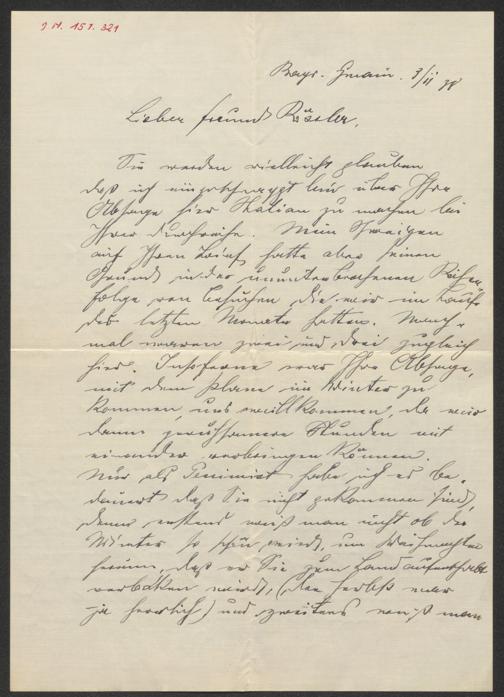 J.N. 151.321
Bayr. Gmain. 3/II 38
Lieber Freund Rössler,
Sie werden vielleicht glauben
daß ich eingeschnappt bin über Ihre
Absage hier Station zu machen bei
Ihrer Durchreise. Mein Schweigen
auf Ihren Brief hatte aber seinen
Grund in der ununterbrochenen Reihen
folge von Besuchen die wir im Laufe
des letzten Monats hatten. Manch-
mal waren zwei und drei zugleich
hier. Insoferne war Ihre Absage,
mit dem Plane im Winter zu
kommen, uns willkommen, da wir
dann geruhsamere Stunden mit
einander verbringen können.
Nur als Pessimist habe ich es be-
dauert daß Sie nicht gekommen sind,
denn erstens weiß man nicht ob der
Winter so schön wird, um Weihnachten
herum, daß er Sie zum Landaufenthalt
verlocken wird, (der Herbst war
ja herrlich) und zweitens weiß man